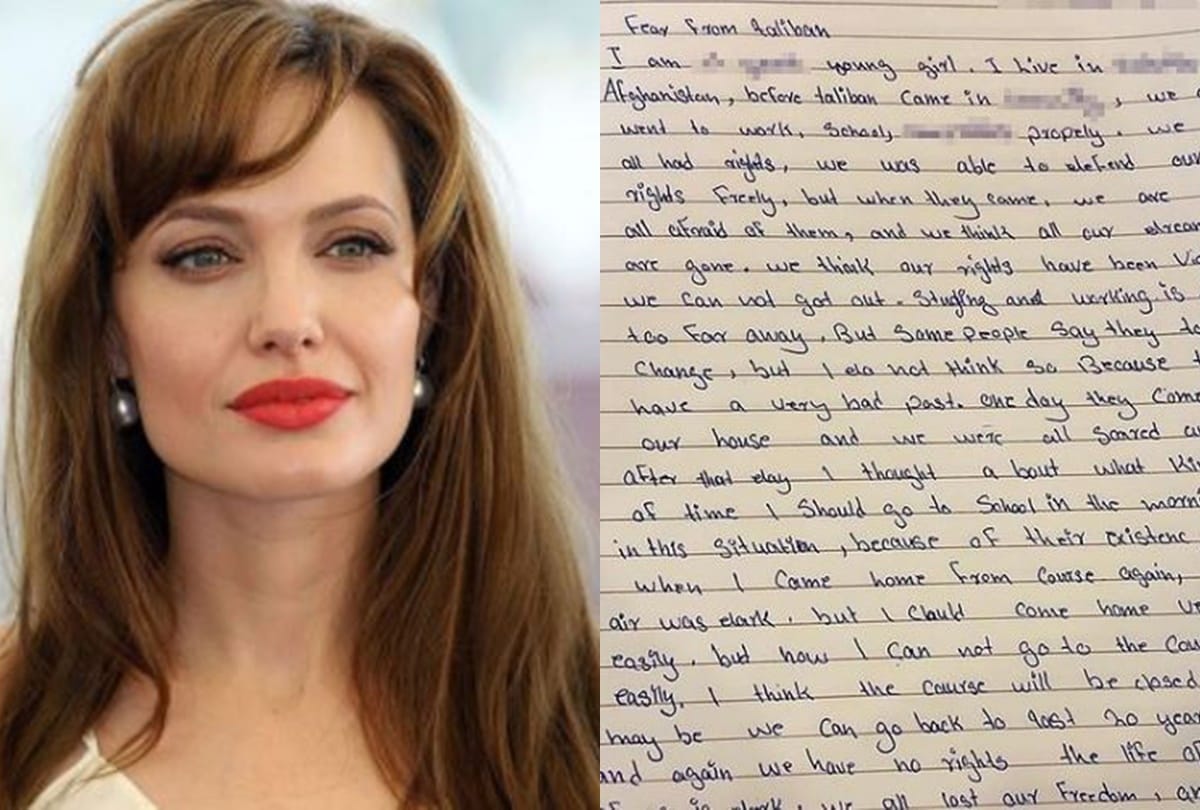 Fear from taliban
I am young girl. I live in
Afghanistan, before taliban came in , we
went to work, School, propely. we
all had rights, we was able to defend our
rights freely, but when they came, we are
all afraid of them, and we think all our
are gone. we think our rights have been
we can not got out. Studing and working is
too far away. But some people say they
change, but I do not think so Because
have a very bad past. one day they come
our house and we were all scared
after that day I thought a bout what
of time I Should go to School in the
in this situation, because of their existenc
when I came home from course again,
air was dark. but I Clould come home
easily. but now I can not go to the
easily. I think the course will be closed
may be we can go back to last 20 year
and again we have no rights the life
is dark. we all lost our freedom,